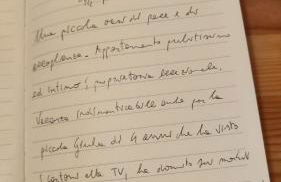 Una piccola oasi di pace e di
accoglienza. Appartamento pulitissimo
ed intimo,
Vacanza indimenticabile anche per la
piccola Giulia di 4 anni che ha visto
i cartoni alla TV, ha dormito sui